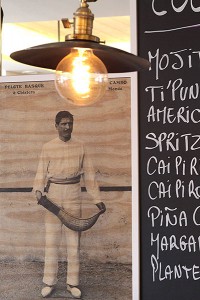 PELOTE BASQUE
à Chistera
COC
MOJIT
TI'PUN
AMERIC
SPRITZ
CAIPIR
CAIPIRO
PIÑA C
MARGAR
PLANTE